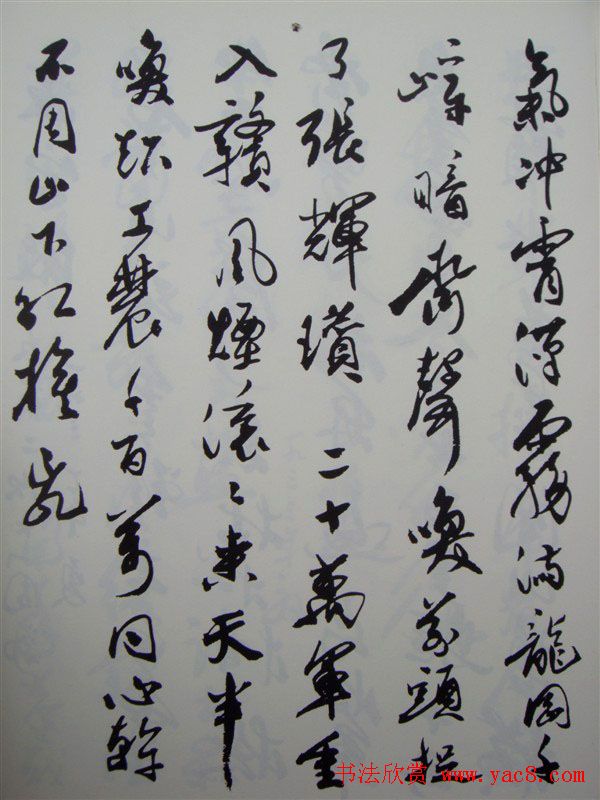 氣冲霄漢霧滿龍岡千
嶂暗齊聲喚前頭捉
了張輝瓚 二十萬軍重
入贛風煙滾〻來天半
喚起工農千百萬同心幹
不周山下紅旗亂
书法欣赏 www.yac8.com